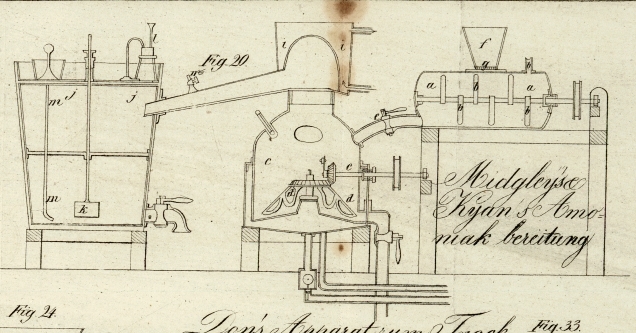 l
i
i
f
Fig. 20.
g
n
h
j
j
a
a
m
b
b
b
e
c
e
Midgley's &
d
d
Kyan's Amo-
m
k
niak bereitung
Fig 24
Don's Apparat zum Trock
Fig. 33.